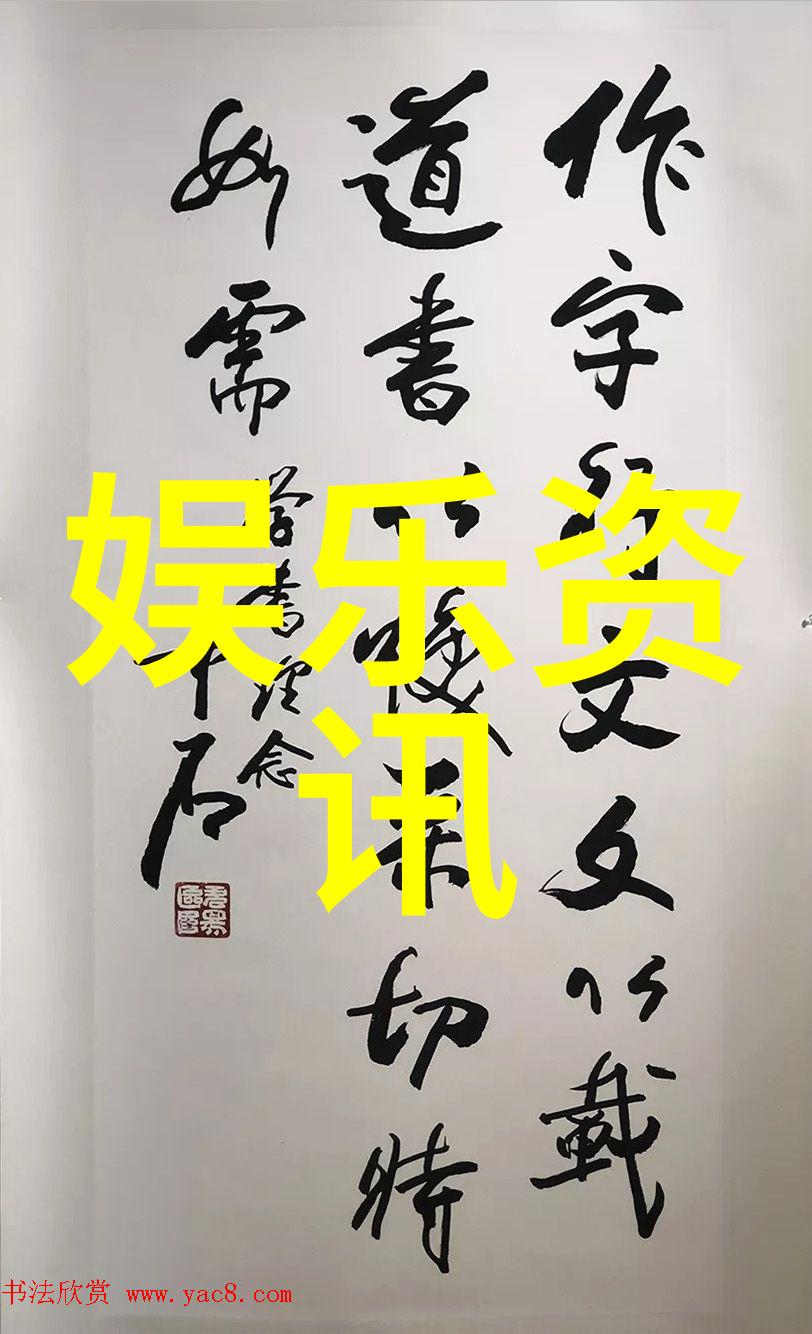 作字行文文以載
道書以 切時
如需
学書理念
石
娱乐资
讯
书法欣赏 www.yac8.com